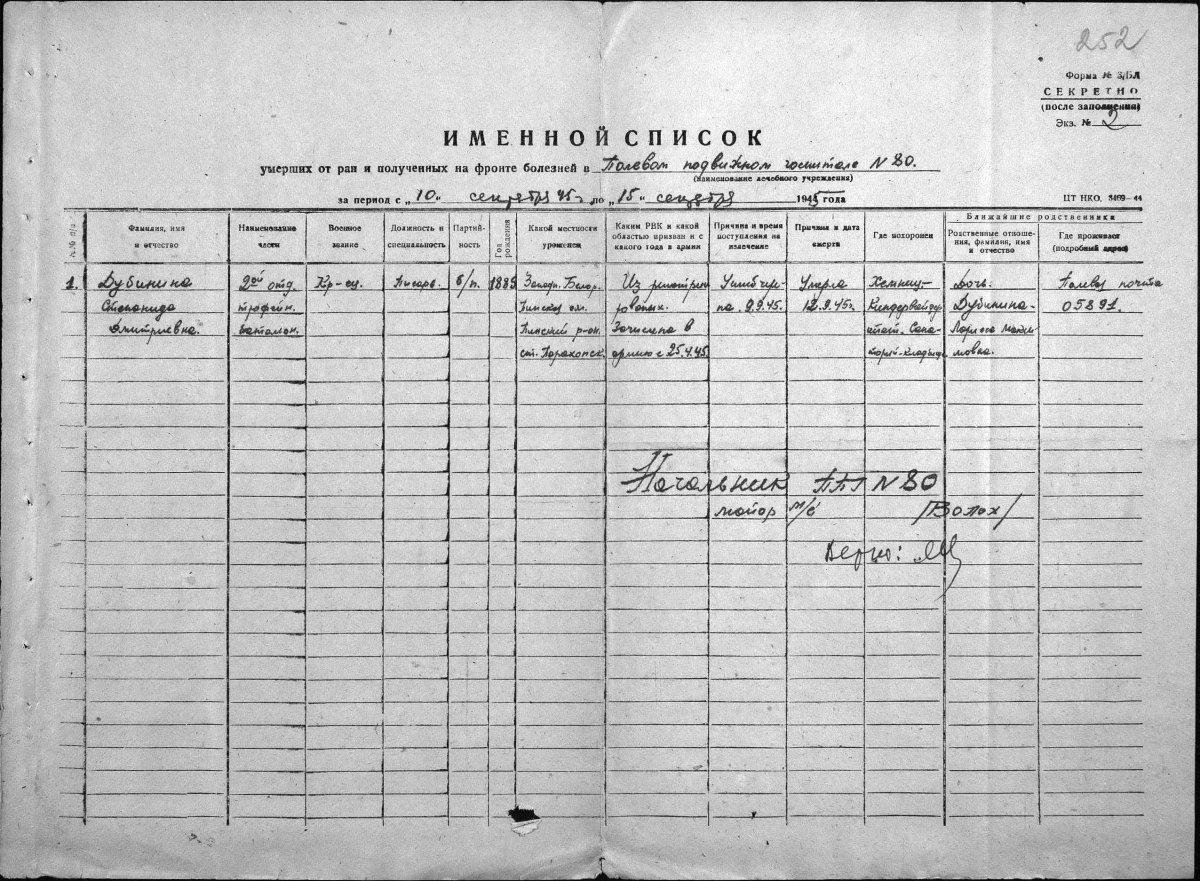 252
Форма № 3/БЛ
СЕКРЕТНО
(после заполнения)
Экз. № 2
ИМЕННОЙ СПИСОК
умерших от ран и полученных на фронте болезней в Полевом подвижном госпитале N 80.
(наименование лечебного учреждения)
за период с „10" сентября 45 г. по „15" сентября 1945 года
ЦТ НКО. 3469—44
№№ п/п
Фамилия, имя и отчество
Наименование части
Военное звание
Должность и специальность
Партийность
Год рождения
Какой местности уроженец
Каким РВК и какой областью призван и с какого года в армии
Причина и время поступления на излечение
Причина и дата смерти
Где похоронен
Ближайшие родственники
Родственные отношения, фамилия, имя и отчество
Где проживает (подробный адрес)
1. Дубинина 2ой отд. Кр-ец. Писарь. б/п. 1885 Западн. Белор. Из репатриированных. Умерла Хемниц- Дочь. Полевая почта
Степанида трофейн. Пинская обл. на 9.9.45. 12.9.45г. Дубинина 05891.
Дмитриевна. батальон. Пинский р-он. Зачислена в Лариса Макси
ст. Парахонск. армию с 25.4.45. мовна.
Начальник ППГ N 80
майор м/с /Волох/
Верно: